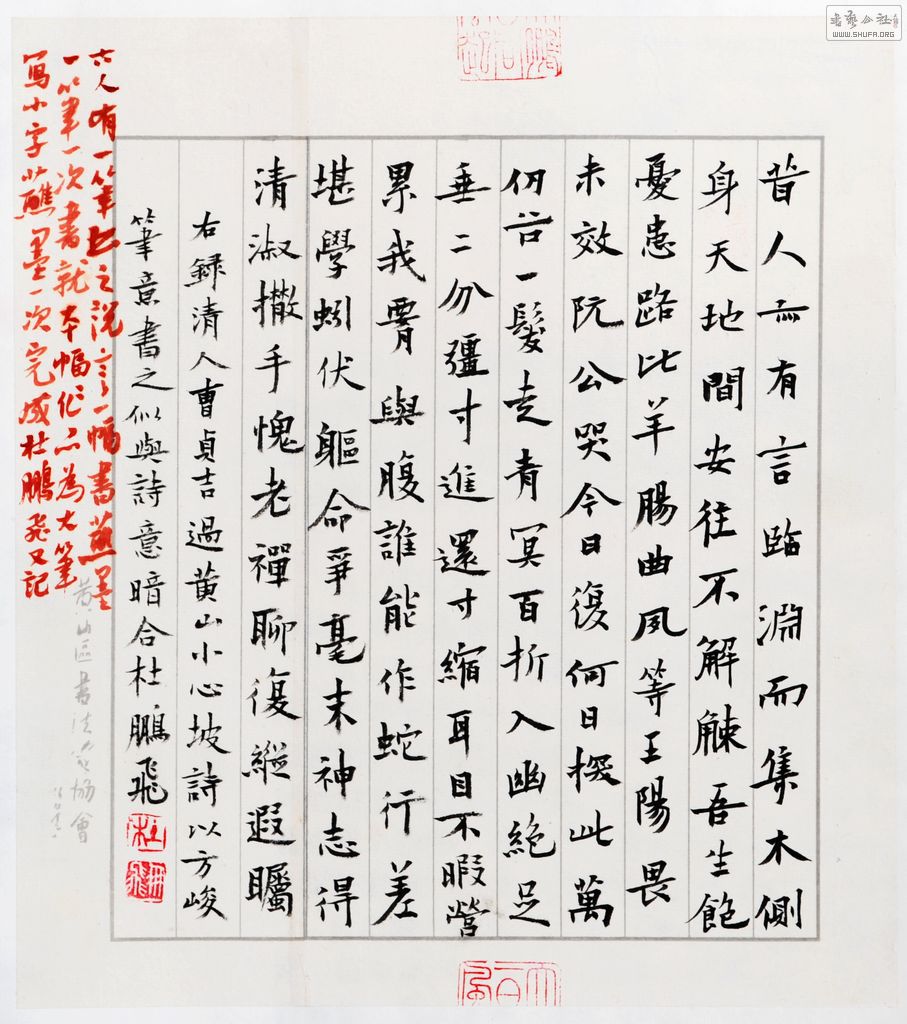 昔人亦有言臨淵而集木側
身天地間安往不解觫吾生飽
憂患路比羊腸曲夙等王陽畏
未效阮公哭今日復何日擬此萬
仞谷一髮走青冥百折入幽絶足
垂二分彊寸進還寸縮耳目不暇營
累我胷與腹誰能作蛇行差
堪學蚓伏軀命爭毫末神志得
清淑撒手愧老禪聊復縱遐矚
右録清人曹貞吉過黄山小心坡詩以方峻
筆意書之似與詩意暗合杜鵬飛
古人有一筆書之說言一幅書蘸墨
一次筆一次書就本幅作品為大筆
寫小字蘸墨一次完成杜鵬飛又記
黄山區書法家協會
書藝公社
WWW.SHUFA.ORG